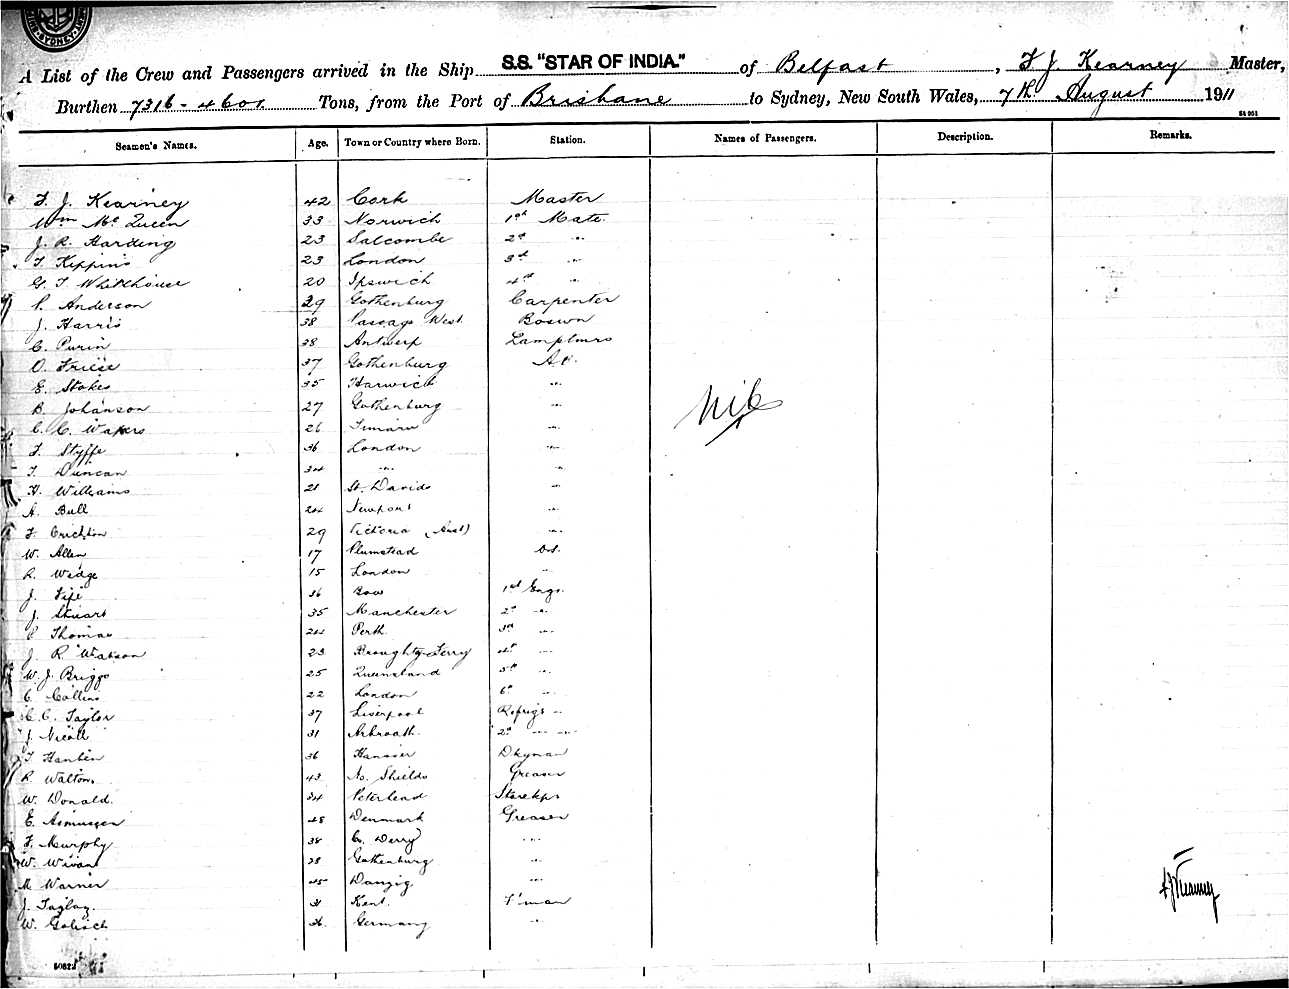 SYDNEY
S.S. "STAR OF INDIA."
A List of the Crew and Passengers arrived in the Ship of Belfast, F J. Kearney Master,
Burthen 7316 - 4601 Tons, from the Port of Brisbane to Sydney, New South Wales, 7th August 1911
Seamen's Names. Age. Town or Country where Born. Station. Names of Passengers. Description. Remarks.
F. J. Kearney 42 Cork Master
Wm Mc Queen 33 Norwich 1st Mate
J. R. Harding 23 Salcombe 2d "
F. Kippins 23 London 3rd "
G. T Whitehouse 20 Ipswich 4th "
P. Anderson 29 Gothenburg Carpenter
J. Harris 38 West Boswn
C. Purin 38 Antwerp Lamptmrs
O. Friese 37 Gothenburg A.B.
E. Stokes 35 Harwich "
B. Johanson 27 Gothenburg "
C. C. 26 Timaru "
F. Styffe 36 London "
T. Duncan 34 " "
H. Williams 21 St. Davids "
A. Bull 24 Newport "
F. Crichton 29 Victoria (Aust) "
W. Allen 17 Plumstead O.S.
R. Wedge 15 London "
J. Fife 36 Bow 1st Engr.
J. Stuart 35 Manchester 2d "
P Thomas 24 Perth 3rd "
J. R. Watson 23 Broughty Ferry 4th "
W. J. Briggs 25 Queensland 5th "
C. Collins 22 London 6th "
C. C. Taylor 37 Liverpool Refrigs "
J. Nicoll 31 Arbroath 2d " "
F Hanlin 36 Hanover Dkyman
R. Walton 43 No. Shields Greaser
W. Donald. 34 Peterhead Storekpr
E. Asmussen 48 Denmark Greaser
F. Murphy 38 Co. Derry "
W. Wivan 28 Gothenburg "
M Warner 45 Danzig "
J. Taylor. 31 Kent. F'man
W. Golisch 36 Germany "
Nil
F J Kearney